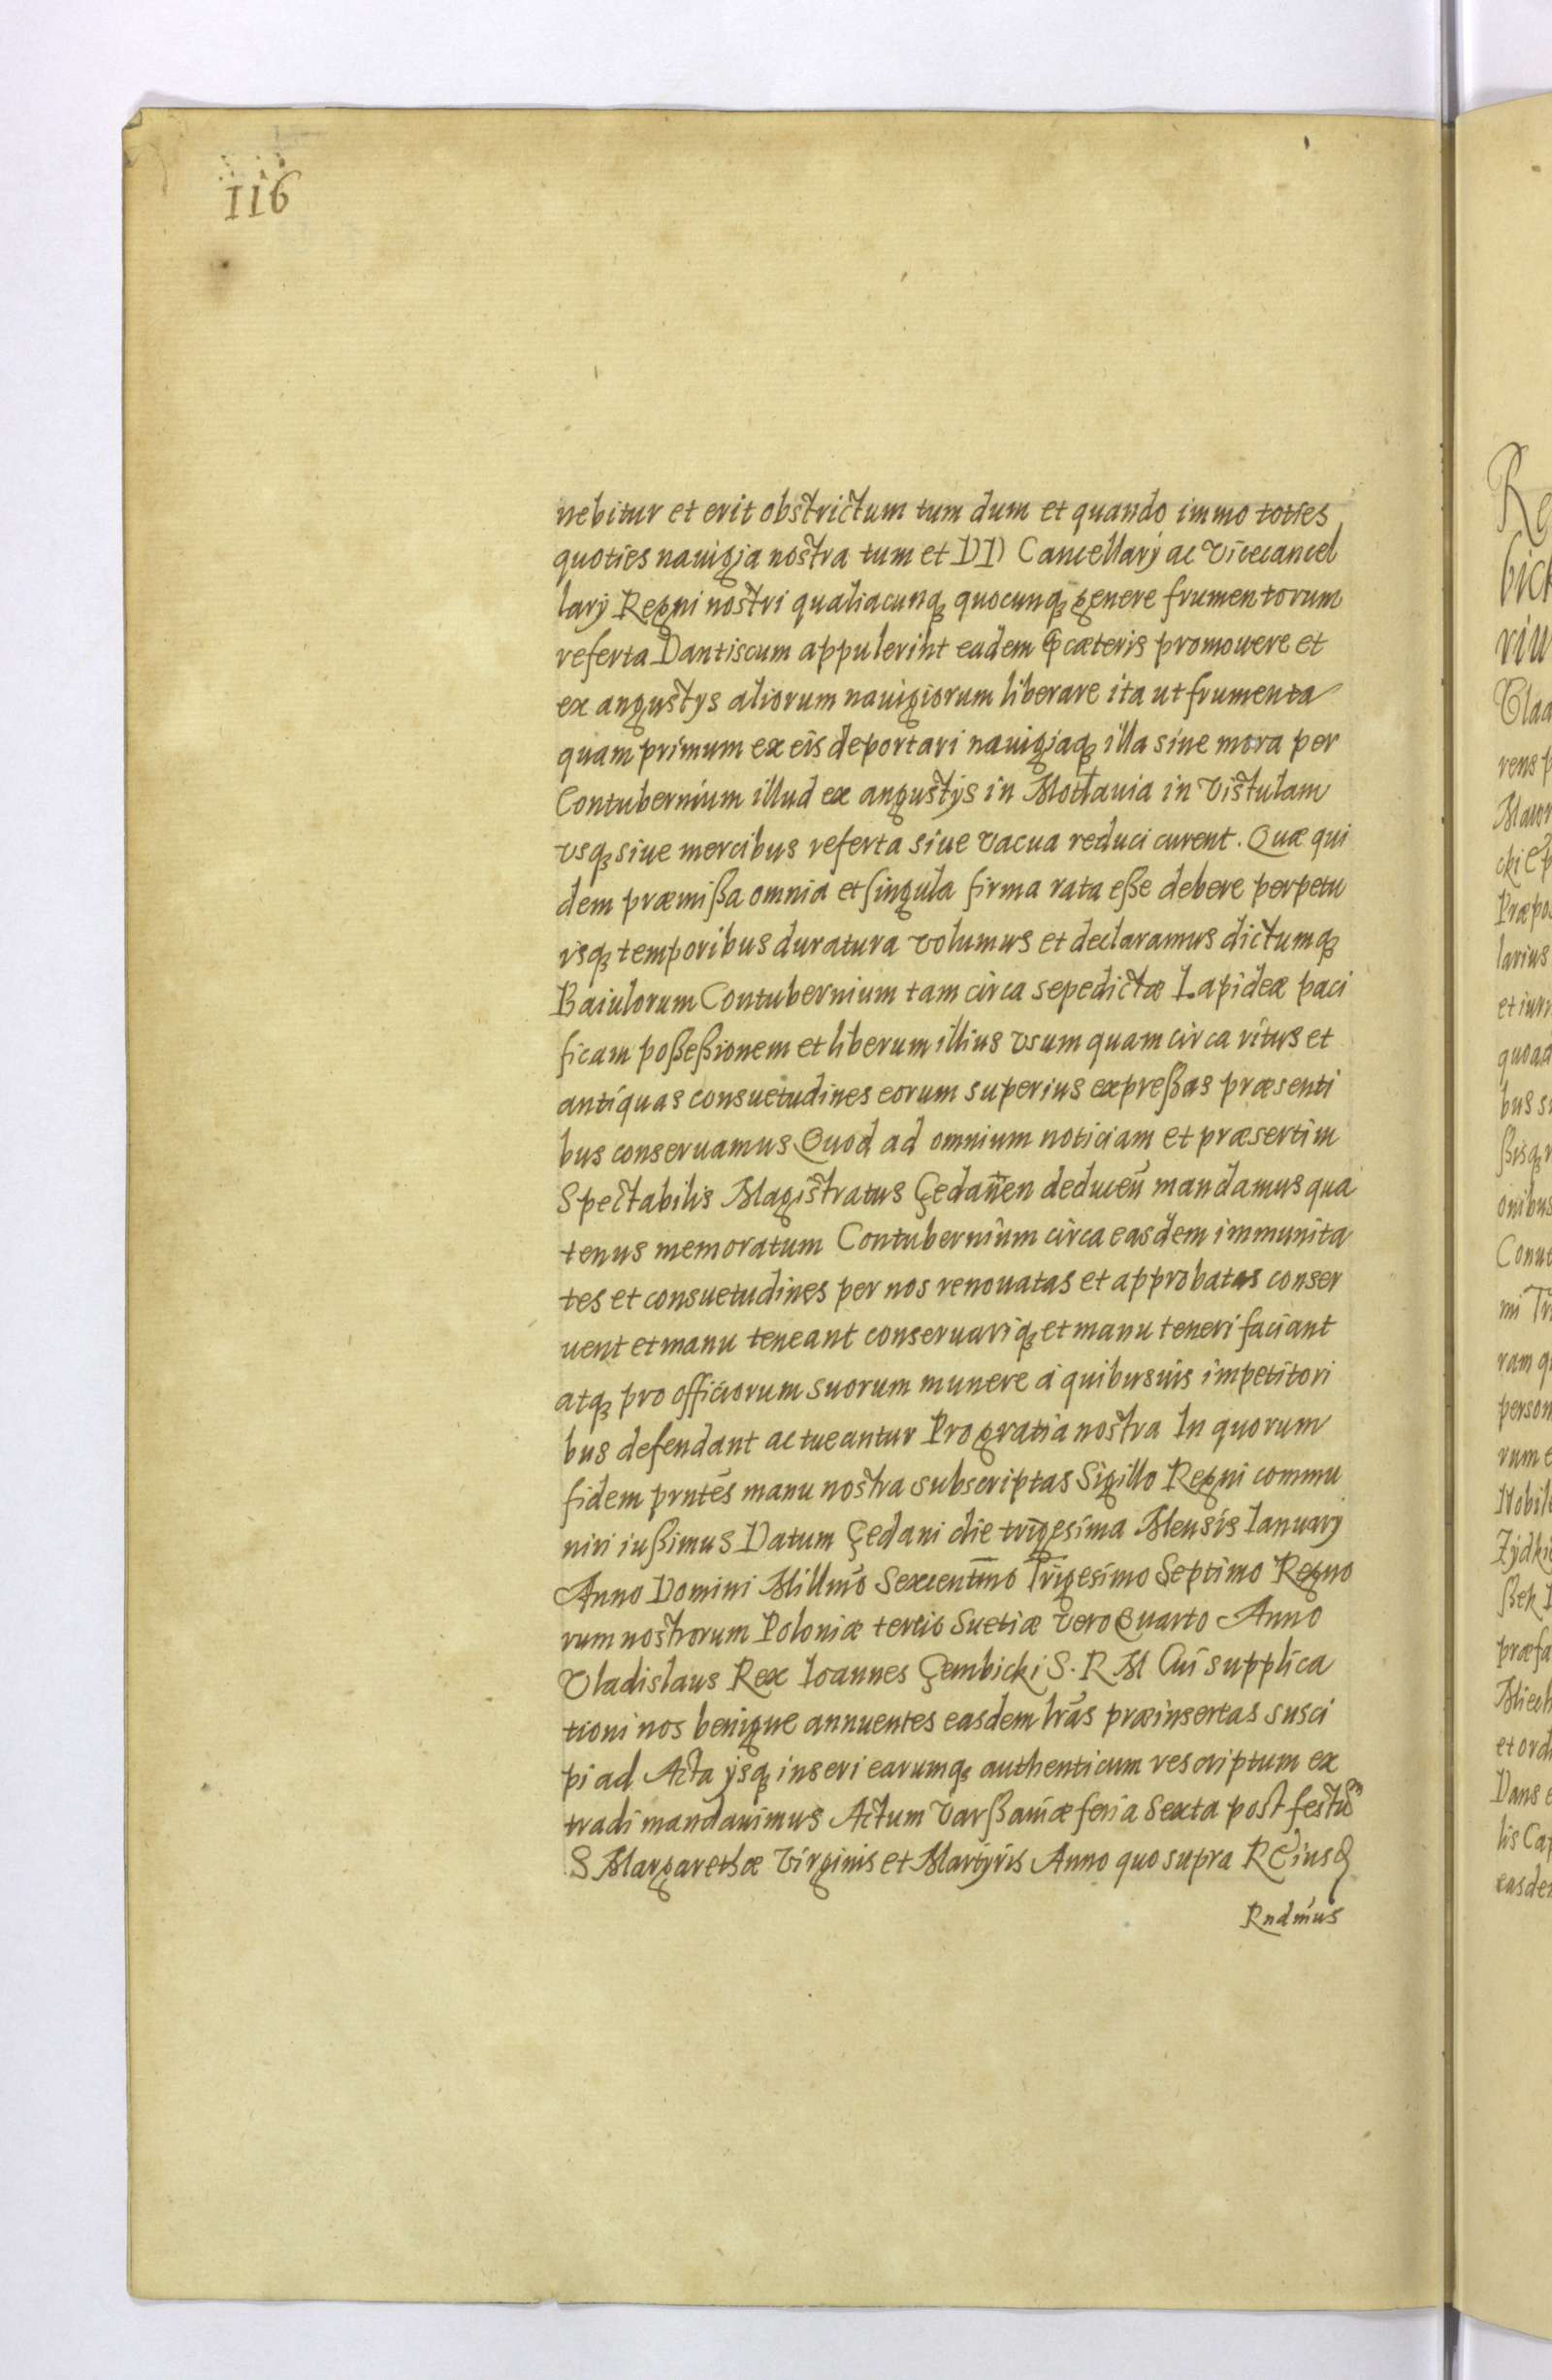 116
nebitur et erit obstrictum tum dum et quando immo toties
quoties nauigia nostra tum et DD Cancellarÿ ac Vicecancel
larÿ Regni nostri qualiacunq quocunq genere frumentorum
referta Dantiscum appulerint eadem cæteris promouere et
ex angustÿs aliorum nauigiorum liberare ita ut frumenta
quam primum ex eis deportari nauigiaq illa sine mora per
Contubernium illud ex angustÿs in Motlauia in Vistulam
vsq siue mercibus referta siue vacua reduci curent. Quæ qui
dem præmißa omnia et singula firma rata eße debere perpetu
isq temporibus duratura volumus et declaramus dictumq
Baiulorum Contubernium tam circa sepedictæ Lapideæ paci
ficam poßeßionem et liberum illius vsum quam circa ritus et
antiquas consuetudines eorum superius expreßas præsenti
bus conseruamus Quod ad omnium noticiam et præsertim
Spectabilis Magistratus Gedanēn deduceñ mandamus qua
tenus memoratum Contubernium circa easdem immunita
tes et consuetudines per nos renouatas et approbatas conser
uent et manu teneant conseruariq et manu teneri faciant
atq pro officiorum suorum munere a quibusuis impetitori
bus defendant ac tueantur Pro gratia nostra In quorum
fidem prñtes manu nostra subscriptas Sigillo Regni commu
niri iußimus Datum Gedani die trigesima Mensis Ianuarÿ
Anno Domini Millmõ Sexcentmõ Trigesimo Septimo Regno
rum nostrorum Poloniæ tercio Suetiæ vero Quarto Anno
Vladislaus Rex Ioannes Gembicki S. R M Cui supplica
tioni nos benigne annuentes easdem lrãs præinsertas susci
pi ad Acta ÿsq inseri earumq authenticum rescriptum ex
tradi mandauimus Actum Varßauiæ feria Sexta post festū
S Margarethæ Virginis et Martÿris Anno quo supra R Eiusd
Rndmũs